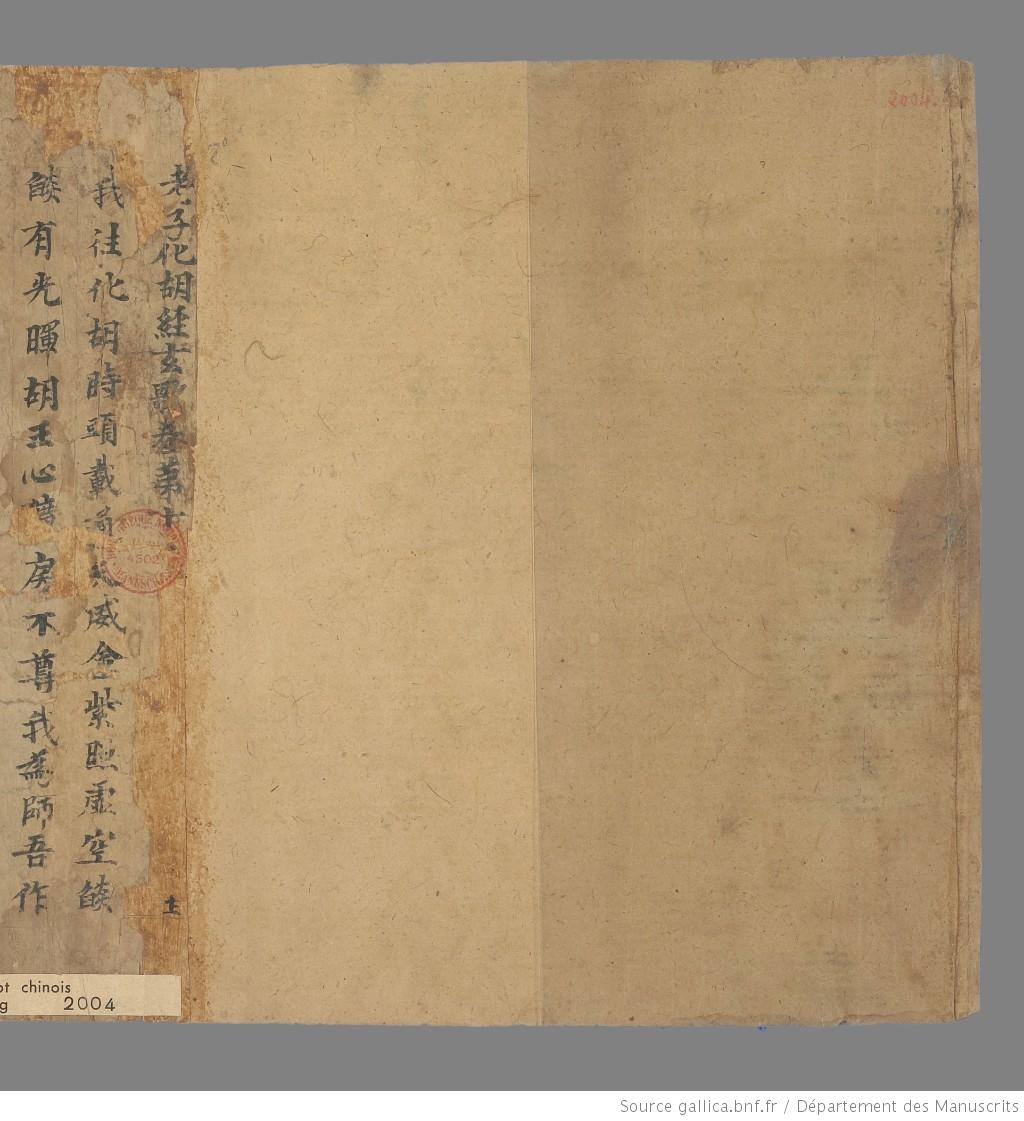 老子化胡経玄歌卷第十
十一
我往化胡時頭戴通天威金紫照虛空燄
燄有光暉胡王心懭戾不尊我為師吾作
2004.
4502
ot chinois
g 2004
Source gallica.bnf.fr / Département des Manuscrits